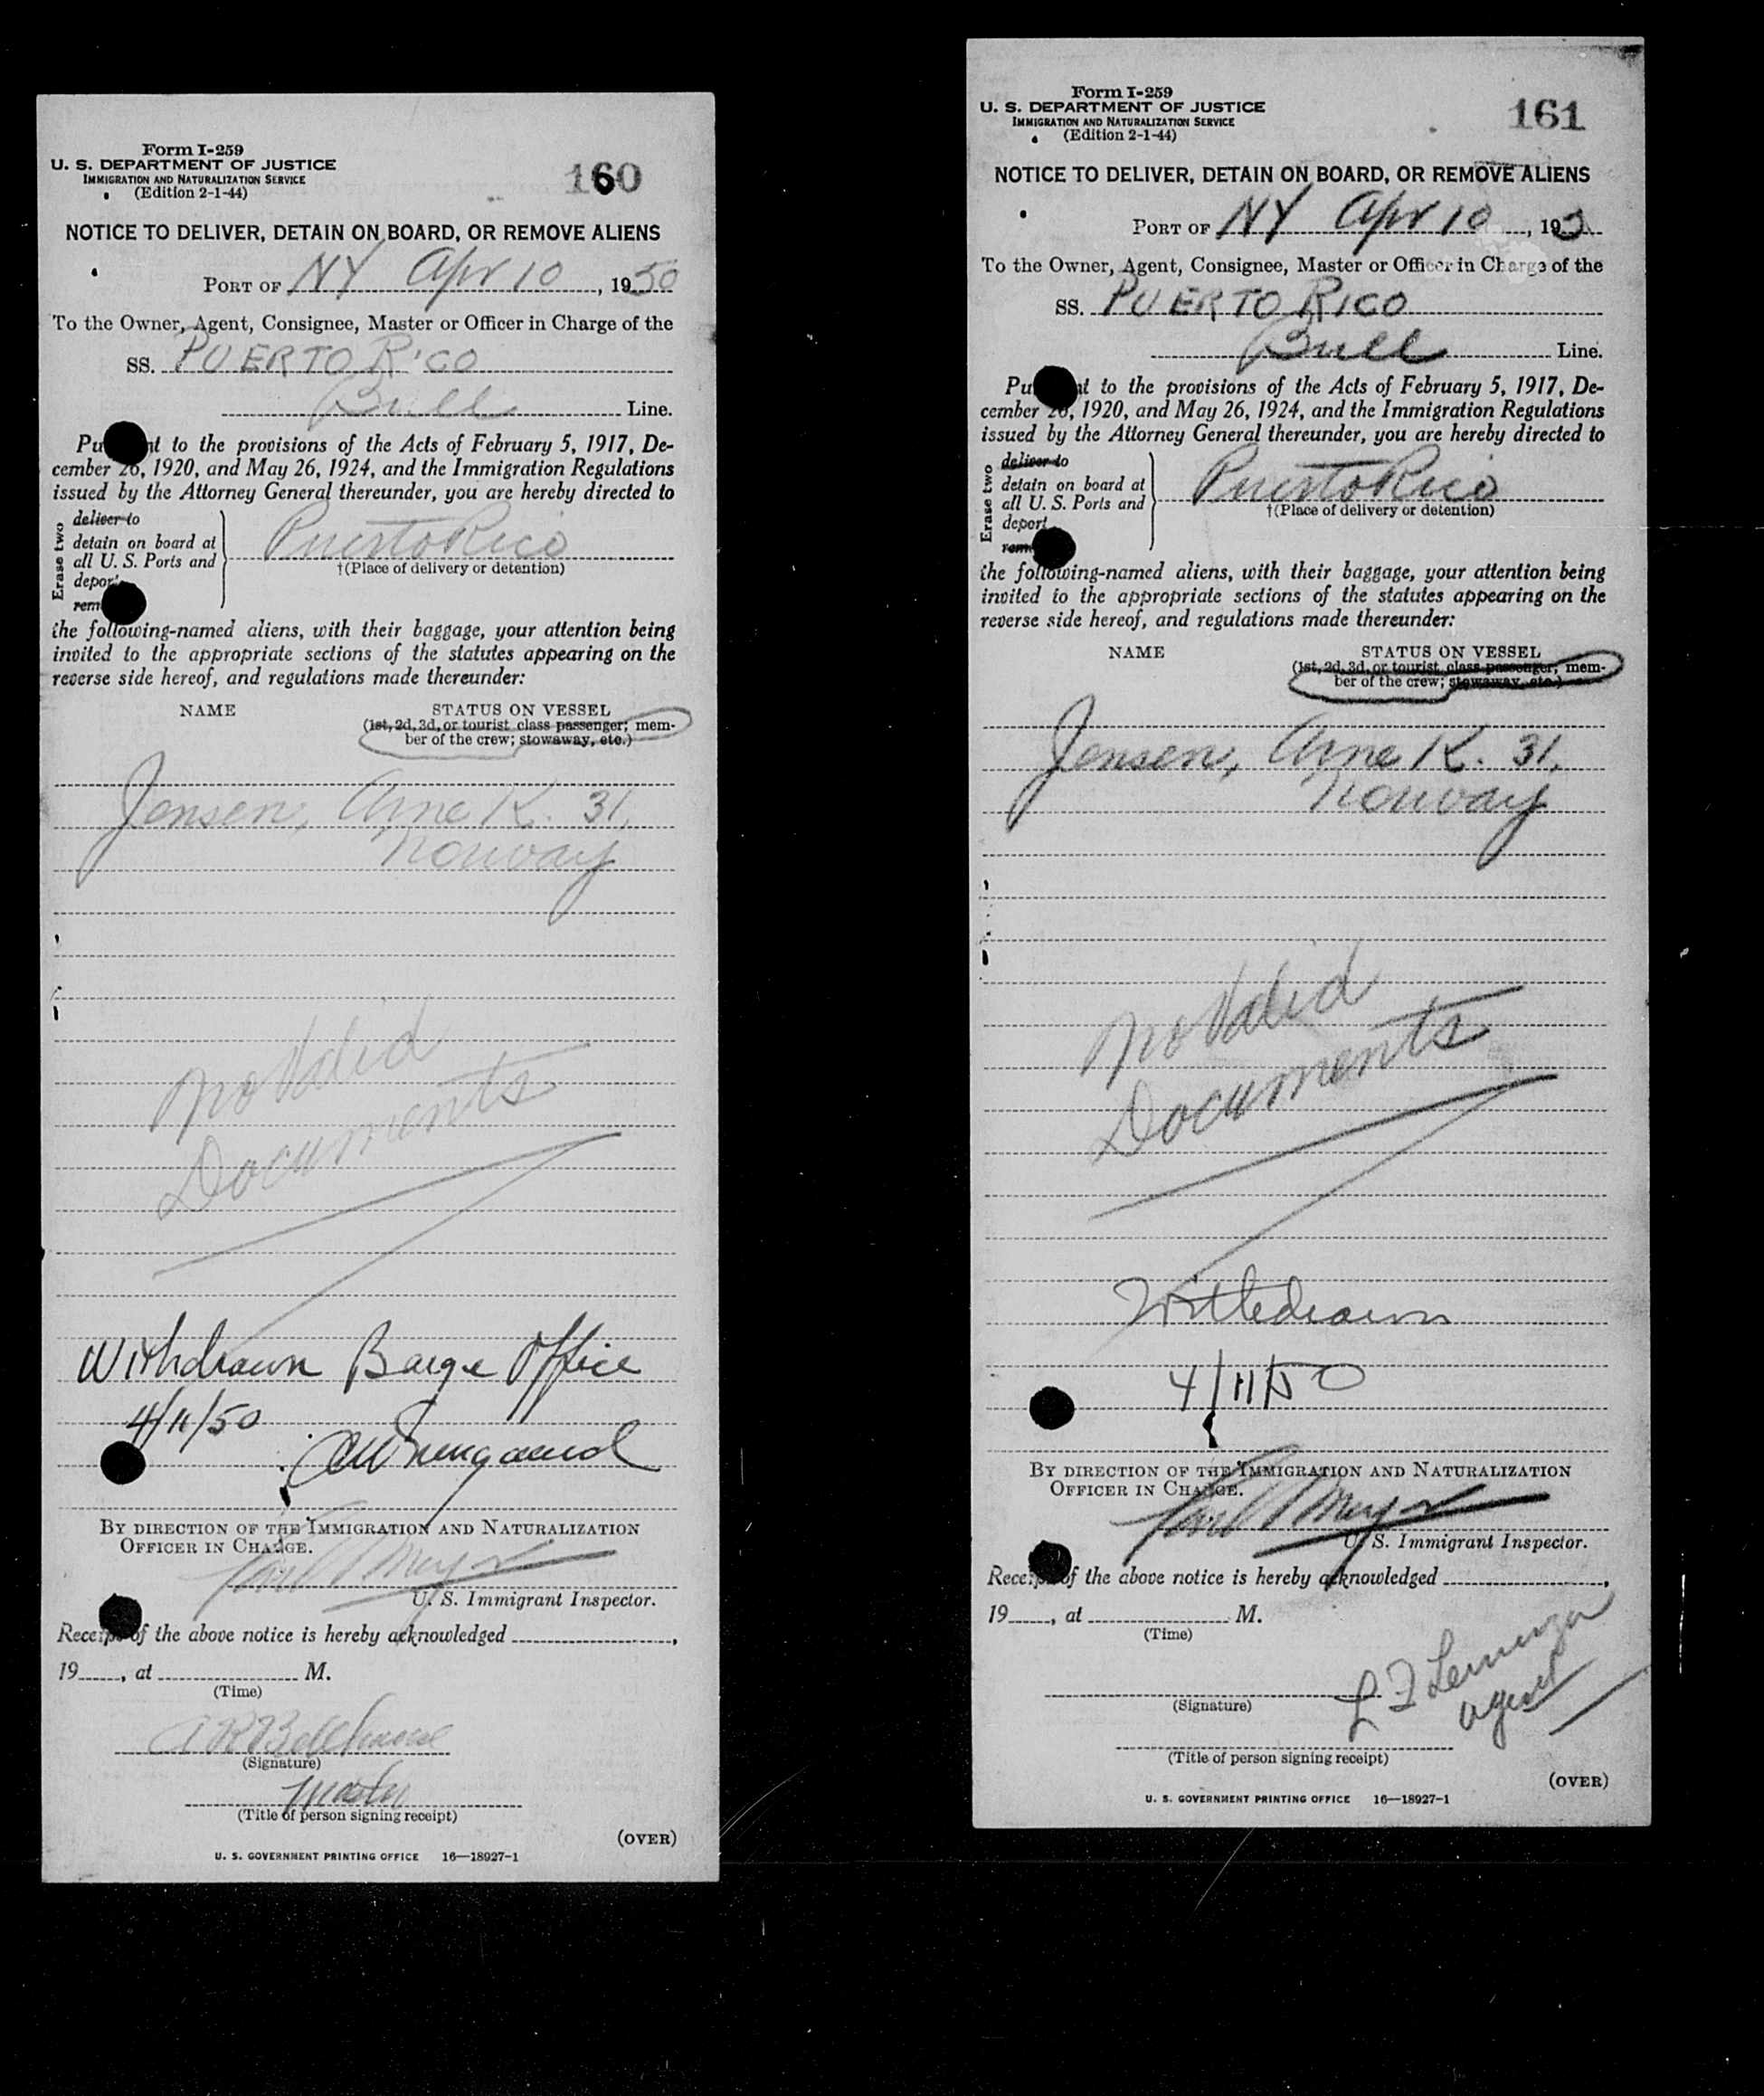 Form I-259
U. S. DEPARTMENT OF JUSTICE
IMMIGRATION AND NATURALIZATION SERVICE
(Edition 2-1-44)
160
NOTICE TO DELIVER, DETAIN ON BOARD, OR REMOVE ALIENS
PORT OF NY Apr 10, 1950
To the Owner, Agent, Consignee, Master or Officer in Charge of the
SS. PUERTO RICO
Bull Line.
Pu t to the provisions of the Acts of February 5, 1917, De-
cember 26, 1920, and May 26, 1924, and the Immigration Regulations
issued by the Attorney General thereunder, you are hereby directed to
Erase two
deliver to
detain on board at
all U. S. Ports and
depor
rem
Puerto Rico
†(Place of delivery or detention)
the following-named aliens, with their baggage, your attention being
invited to the appropriate sections of the statutes appearing on the
reverse side hereof, and regulations made thereunder:
NAME STATUS ON VESSEL
(1st, 2d, 3d, or tourist class passenger; mem-
ber of the crew; stowaway, etc.)
Jensen, Arne K. 31,
Norway
No Valid
Documents
Withdrawn Barge Office
4/11/50
BY DIRECTION OF THE IMMIGRATION AND NATURALIZATION
OFFICER IN CHARGE.
U. S. Immigrant Inspector.
Receipt of the above notice is hereby acknowledged ,
19 , at M.
(Time)
(Signature)
Master
(Title of person signing receipt)
(OVER)
U. S. GOVERNMENT PRINTING OFFICE 16—18927-1
Form I-259
U. S. DEPARTMENT OF JUSTICE
IMMIGRATION AND NATURALIZATION SERVICE
(Edition 2-1-44)
161
NOTICE TO DELIVER, DETAIN ON BOARD, OR REMOVE ALIENS
PORT OF NY Apr 10 , 19
To the Owner, Agent, Consignee, Master or Officer in Charge of the
SS. PUERTO RICO
Bull Line.
Pu t to the provisions of the Acts of February 5, 1917, De-
cember 26, 1920, and May 26, 1924, and the Immigration Regulations
issued by the Attorney General thereunder, you are hereby directed to
Erase two
deliver to
detain on board at
all U. S. Ports and
deport
rem
Puerto Rico
†(Place of delivery or detention)
the following-named aliens, with their baggage, your attention being
invited to the appropriate sections of the statutes appearing on the
reverse side hereof, and regulations made thereunder:
NAME STATUS ON VESSEL
(1st, 2d, 3d, or tourist class passenger; mem-
ber of the crew; stowaway, etc.)
Jensen, Arne K. 31,
Norway
No Valid
Documents
Withdrawn
4/11/50
BY DIRECTION OF THE IMMIGRATION AND NATURALIZATION
OFFICER IN CHARGE.
U. S. Immigrant Inspector.
Receipt of the above notice is hereby acknowledged ,
19 , at M.
(Time)
agent
(Signature)
(Title of person signing receipt)
(OVER)
U. S. GOVERNMENT PRINTING OFFICE 16—18927-1